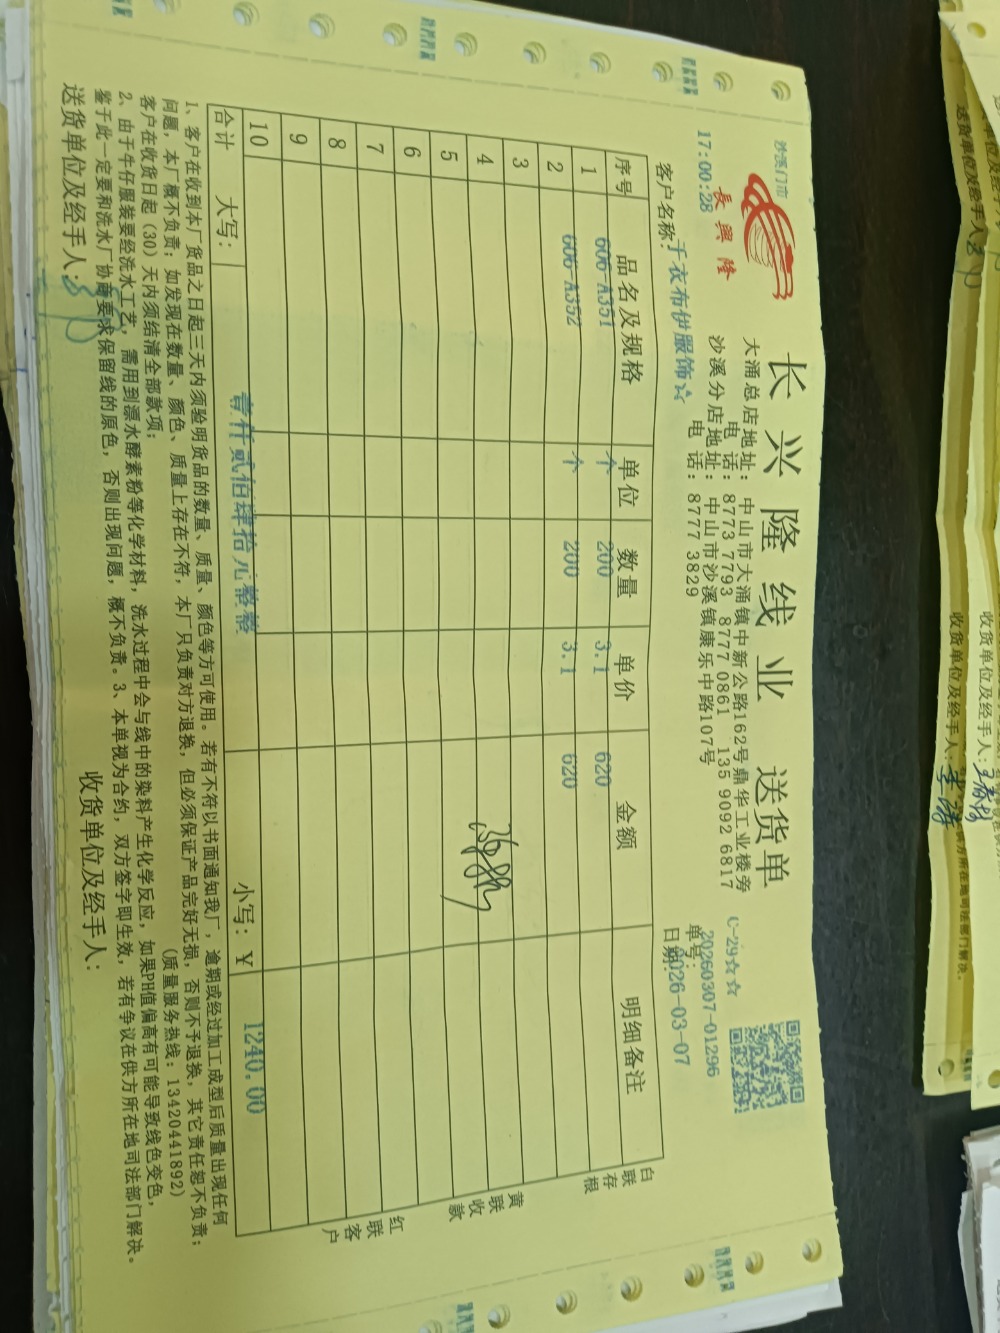 沙溪门市
長興隆
17:00:28
长兴隆线业 送货单
大涌总店地址：中山市大涌镇中新公路162号鼎华工业楼旁
电话：8773 7793 8777 0861 135 9092 6817
沙溪分店地址：中山市沙溪镇康乐中路107号
电话：8777 3829
C-29☆☆
单号：20260307-01296
日期：2026-03-07
客户名称：于衣布伊服饰☆
序号 品名及规格 单位 数量 单价 金额 明细备注
1 606-A351 个 200 3.1 620
2 606-A352 个 200 3.1 620
3
4
5
6
7
8
9
10
合计 大写：壹仟贰佰肆拾元整整 小写：￥ 1240.00
白联存根
黄联收款
红联客户
1、客户在收到本厂货品之日起三天内须验明货品的数量、质量、颜色等方可使用。若有不符以书面通知我厂，逾期或经过加工成型后质量出现任何
问题，本厂概不负责；如发现在数量、颜色、质量上存在不符，本厂只负责对方退换，但必须保证产品完好无损，否则不予退换，其它责任恕不负责；
客户在收货日起（30）天内须结清全部款项； （质量服务热线：13420441892）
2、由于牛仔服装要经洗水工艺，需用到漂水酵素粉等化学材料，洗水过程中会与线中的染料产生化学反应，如果PH值偏高有可能导致线色变色，
鉴于此一定要和洗水厂协商要求保留线的原色，否则出现问题，概不负责。3、本单视为合约，双方签字即生效，若有争议在供方所在地司法部门解决。
送货单位及经手人： 收货单位及经手人：
送货单位及经手人 收货单位及经手人：
收货单位及经手人：
供方所在地司法部门解决。